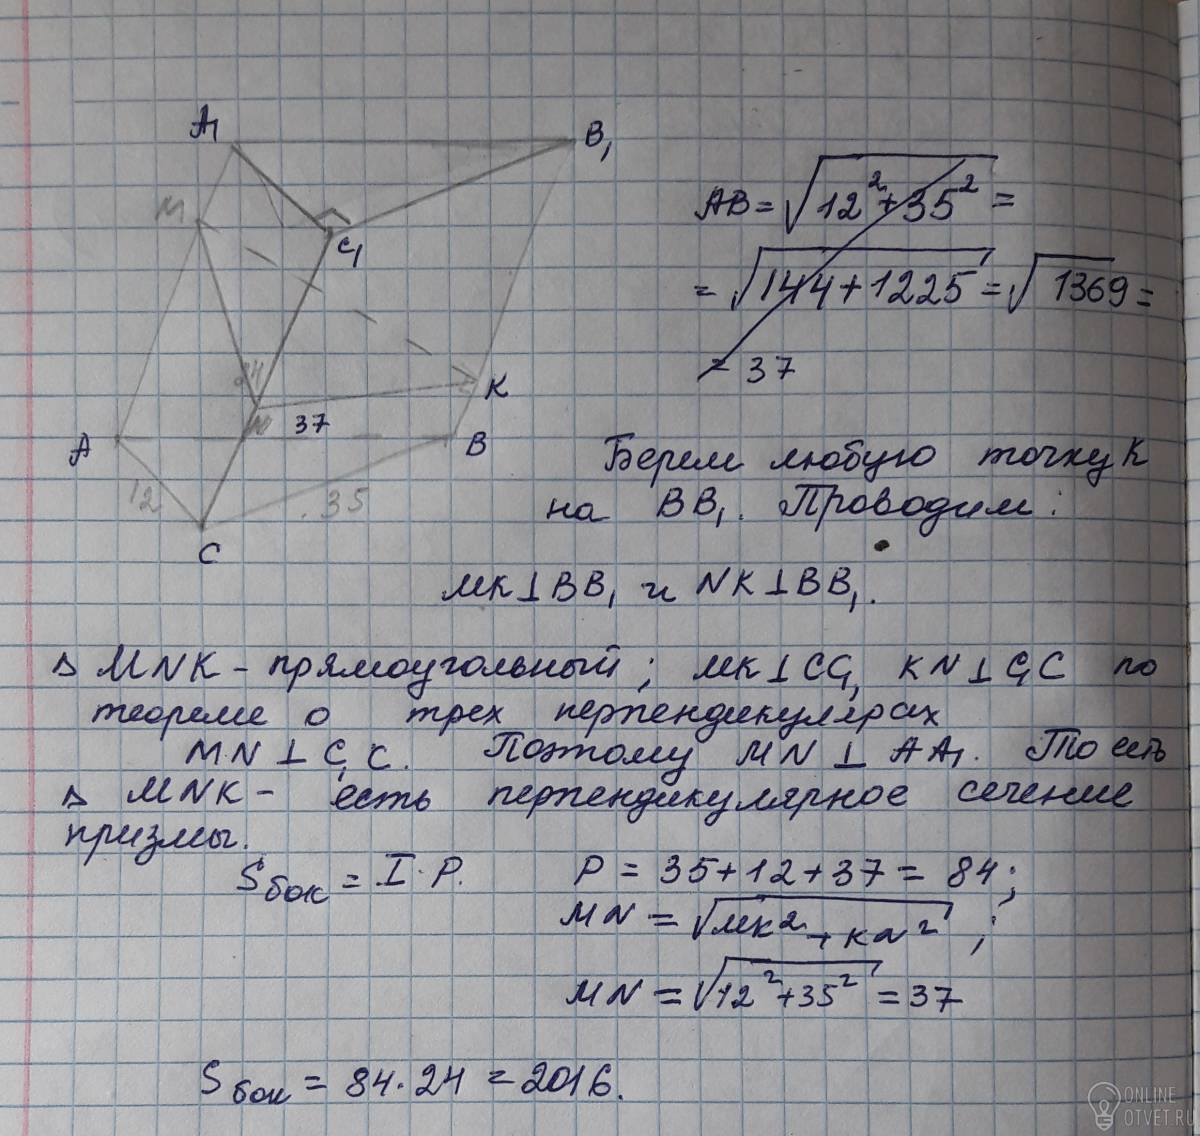 A₁
B₁
M
C₁
24
N
K
37
A
B
12
35
C
AB = √12² + 35² =
= √144 + 1225 = √1369 =
= 37
Берем любую точку K
на BB₁. Проводим:
MK⊥BB₁ и NK⊥BB₁.
△ MNK - прямоугольный; MK⊥CC₁, KN⊥C₁C по
теореме о трех перпендикулярах
MN ⊥ C₁C. Поэтому MN ⊥ AA₁. То есть
△ MNK - есть перпендикулярное сечение
призмы.
Sбок = I · P.
P = 35+12+37 = 84;
MN = √MK² + KN² ;
MN = √12²+35² = 37
Sбок = 84·24 = 2016.
ONLINE
OTVET.RU